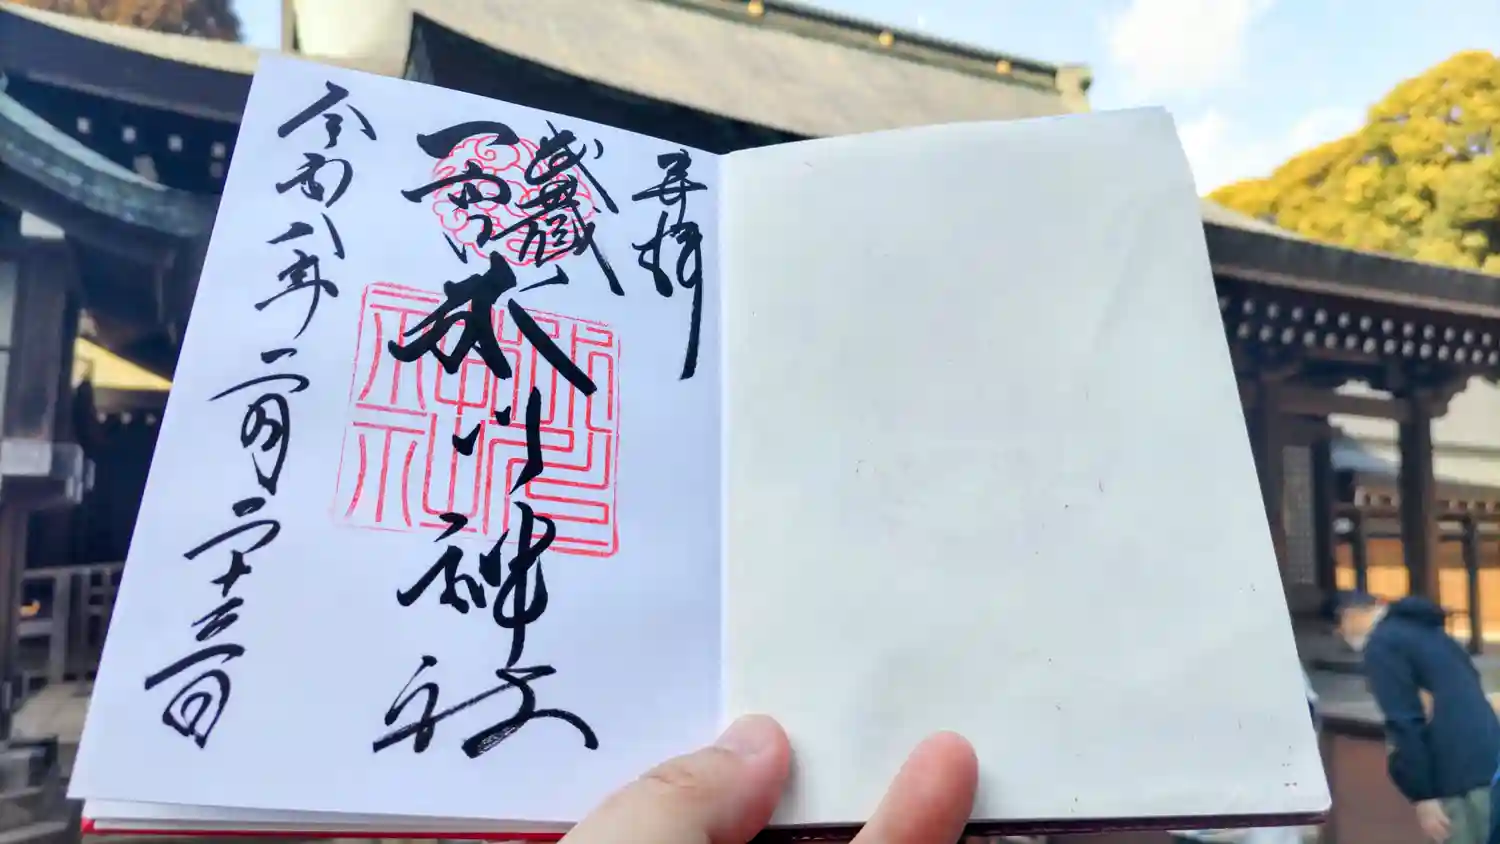 奉拝
武蔵
一宮
氷川神社
氷川
神社
令和八年二月二十三日